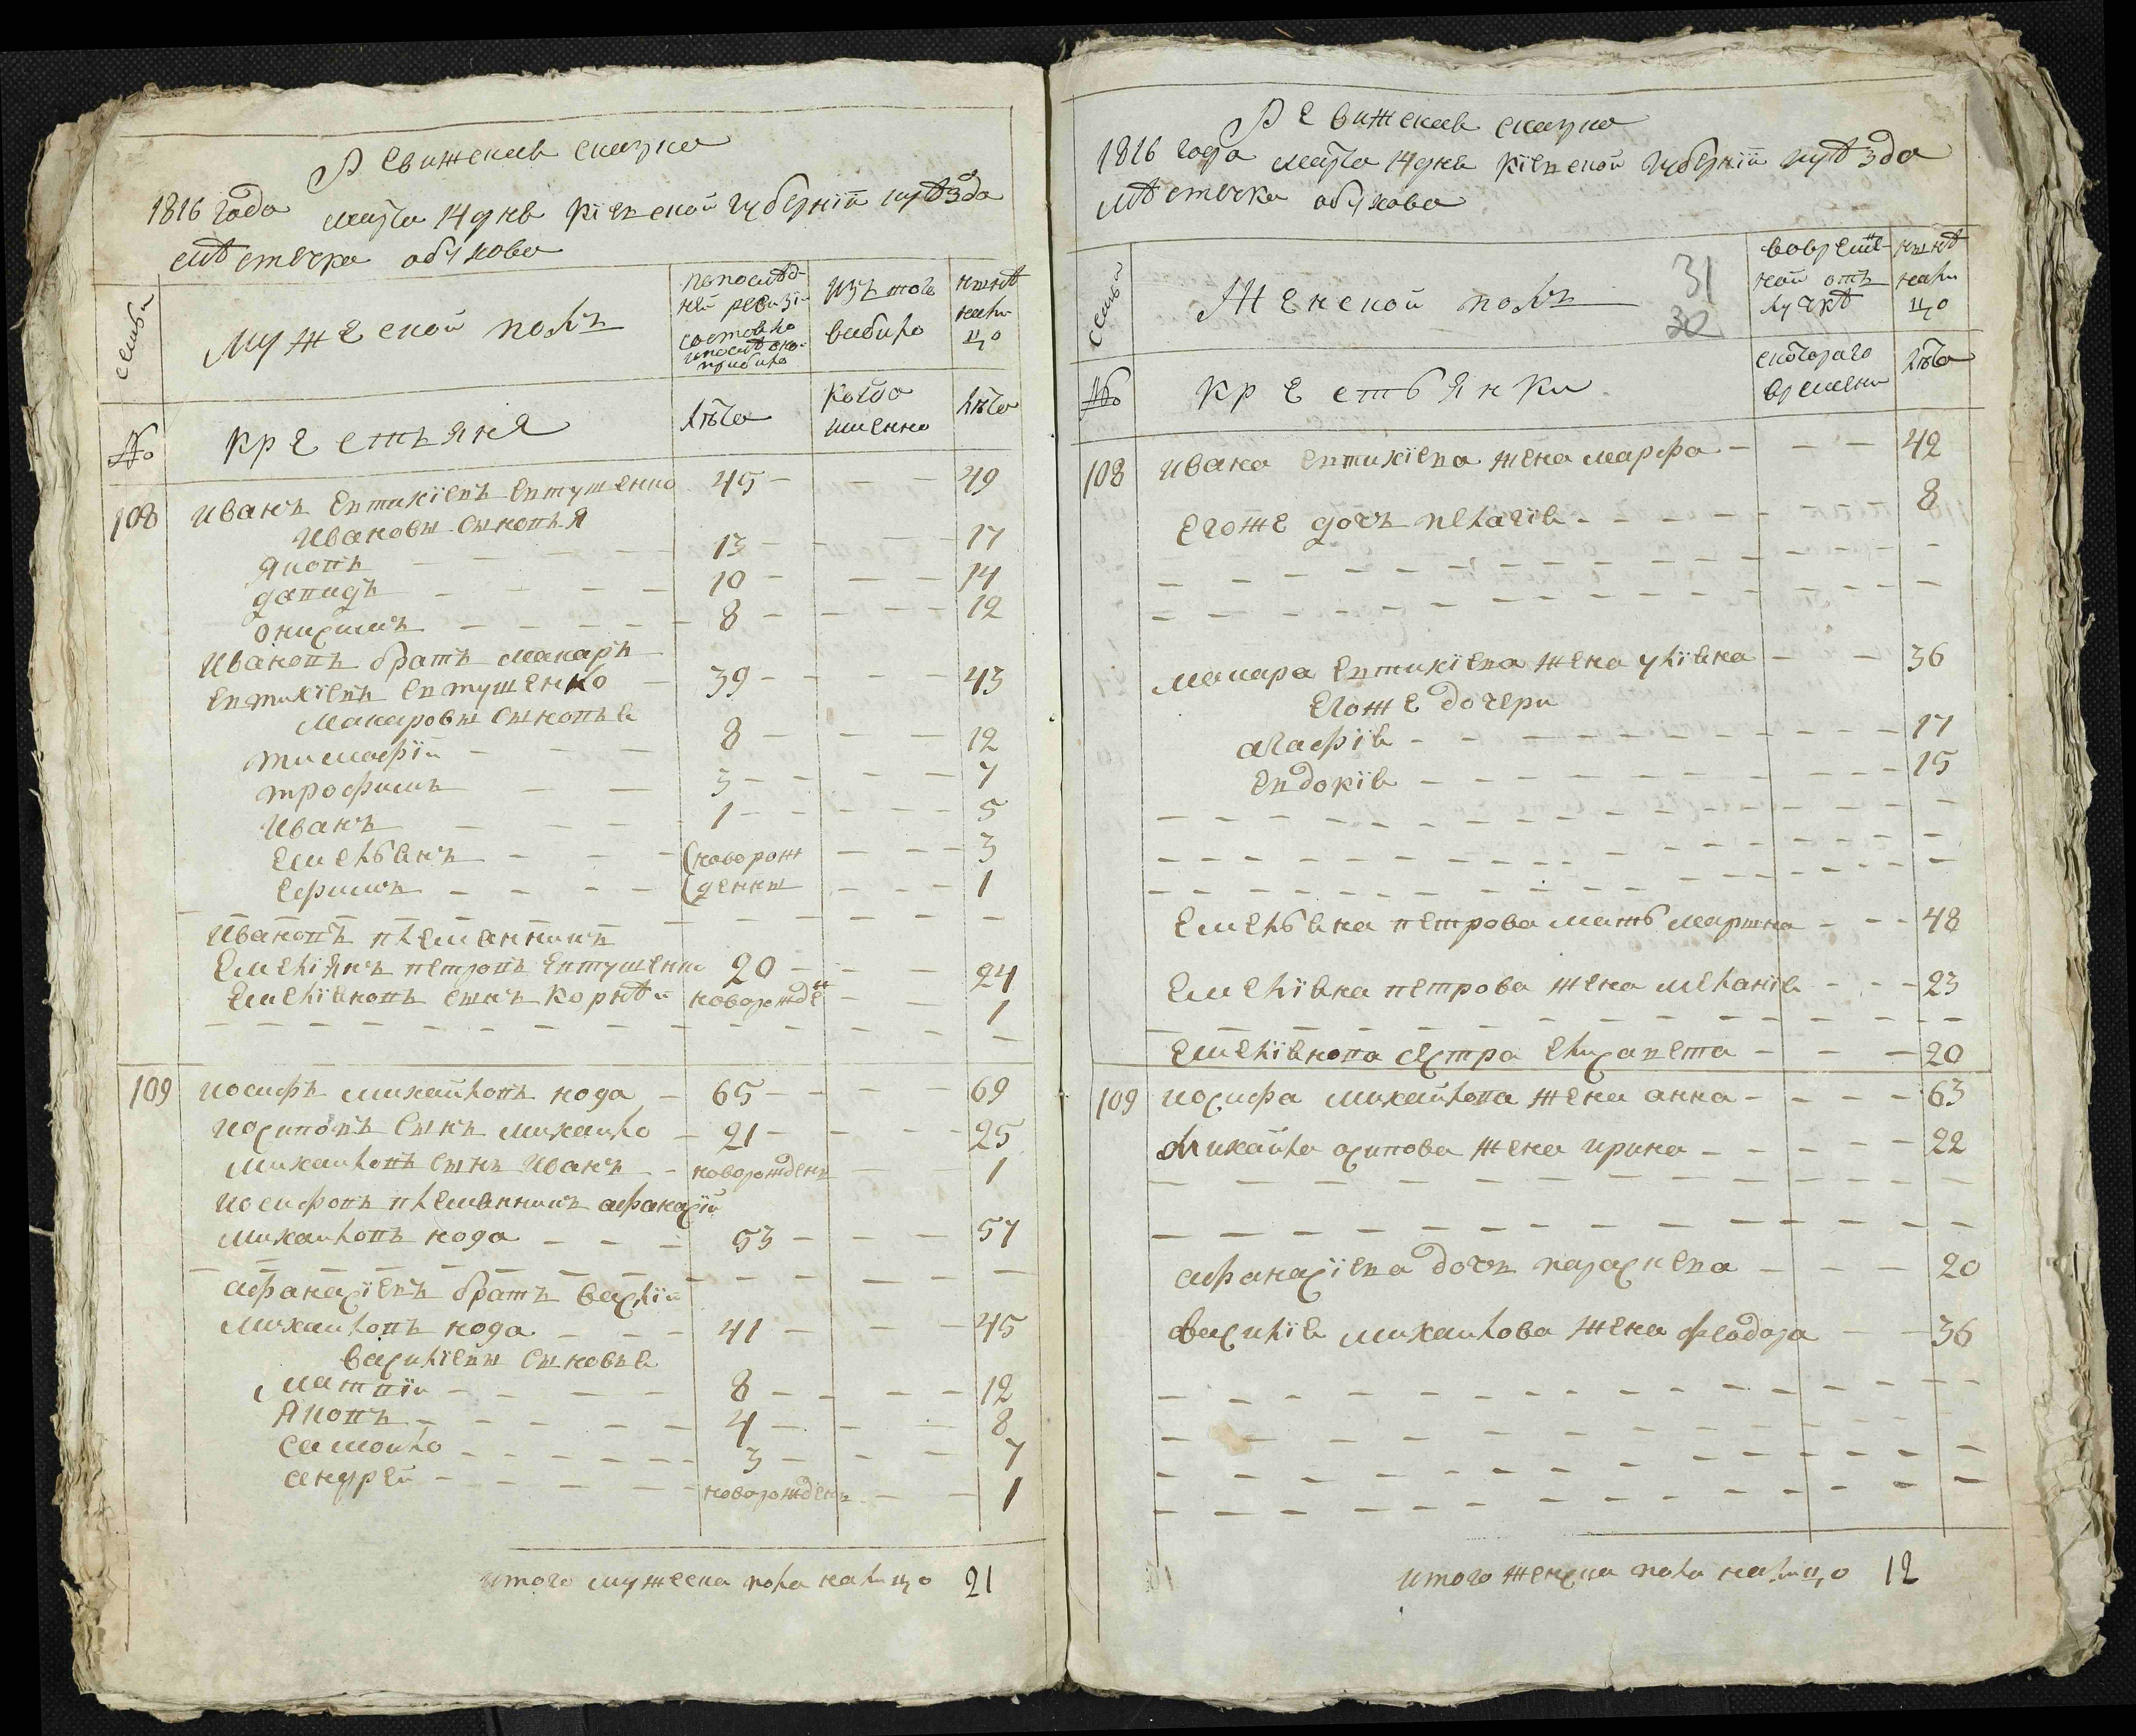 Ревижская сказка
1816 года маїя 14 дня Кіевской губерніи и уѣзда
мѣстечка обухова
семьи
Мужеской полъ
по послѣд-
ней ревизіи
состояло
и послѣ оно-
прибыло
Изъ того
выбыло
нынѣ
нали
цо
№
крестьяня
лѣта
когда
именно
лѣта
108 Иванъ Евтихіевъ Евтушенко 45 - - - 49
Ивановы сыновья
Яковъ - - - 13 - - - 17
давидъ - - - 10 - - - 14
Онисимъ - - - 8 - - - 12
Ивановъ братъ Макаръ
Евтихіевъ Евтушенко - 39 - - - 43
Макаровы сыновья
тимофѣй - - - 8 - - - 12
трофимъ - - - 3 - - - 7
Иванъ - - - 1 - - - 5
Емельянъ - - - (новорож - - - 3
Ефимъ - - - (денны - - - 1
Ивановъ племянникъ
Емеліянъ петровъ Евтушенко 20 - - - 24
Емеліяновъ сынъ Корнѣй новорожде - - 1
109 иосифъ михайловъ кода - 65 - - - 69
иосиповъ сынъ михайло - 21 - - - 25
михайловъ сынъ Иванъ - - новорожденъ - 1
иосифовъ племянникъ афанасій
михайловъ кода - - - 53 - - - 57
афанасіевъ братъ василій
михайловъ кода - - - 41 - - - 45
василіевы сыновья
матвій - - - 8 - - - 12
Яковъ - - - 4 - - - 8
самойло - - - 3 - - - 7
андрей - - - новорожденъ - - 1
итого мужеска пола налицо 21
Ревижская сказка
1816 года маїя 14 дня Кіевской губерніи и уѣзда
мѣстечка обухова
семьи
Женской полъ
31
30
во времен-
ной отъ
лучкѣ
нынѣ
нали
цо
№
крестьянки
с котораго
времени
лѣта
108 Ивана Евтихіева жена марфа - - - 42
Егоже дочъ пелагія - - - 8
Макара Евтихіева жена уліяна - - - 36
Егоже дочери
агафія - - - 17
Евдокія - - - 15
Емельяна петрова мать марина - - - 48
Емеліяна петрова жена меланія - - - 23
Емеліянова сестра елисавета - - - 20
109 иосифа михайлова жена анна - - - 63
михайла осипова жена ирина - - - 22
афанасіева дочъ параскева - - - 20
василія михайлова жена феодора - - - 36
итого женска пола налицо 12